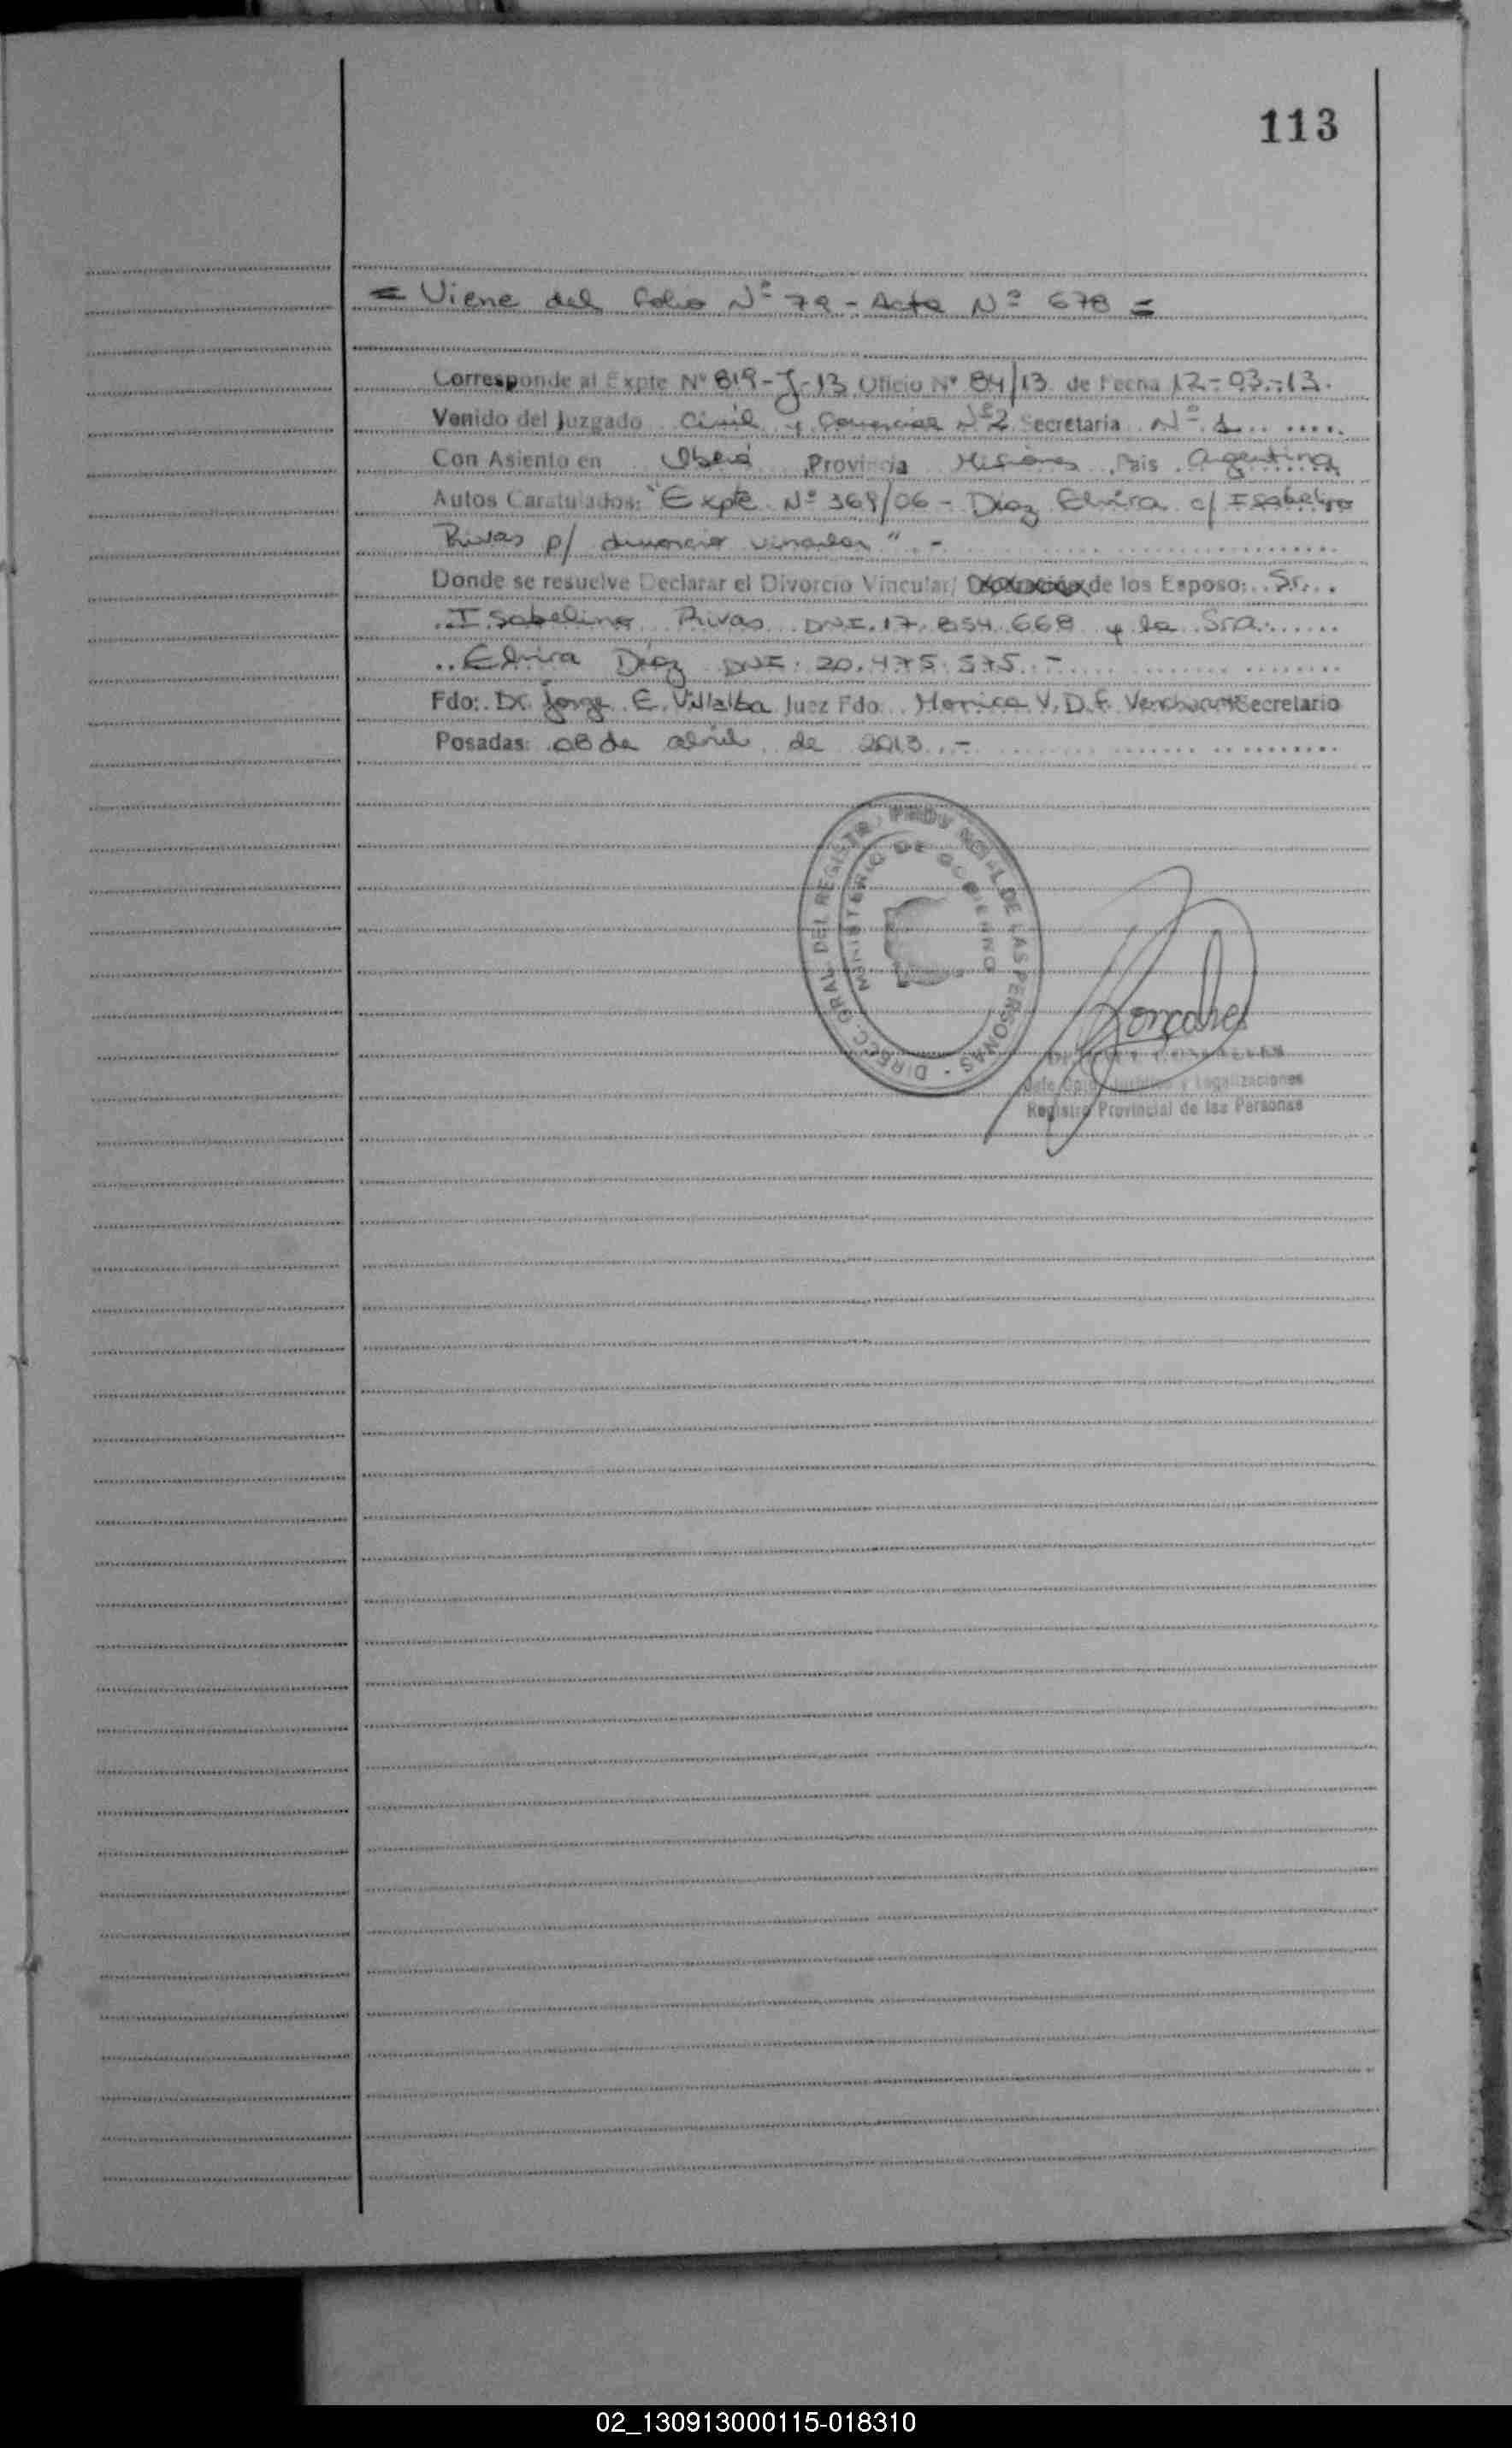 113
= Viene del folio Nº 79 - Acta Nº 678 =
Corresponde al Expte Nº 819-J-13 Oficio Nº 84/13 de Fecha 12-03-13.
Venido del Juzgado Civil y Comercial Nº2 Secretaria Nº 1
Con Asiento en Oberá Provincia Misiones Pais Argentina
Autos Caratulados: "Expte Nº 369/06 - Diaz Elvira c/ Isabelino
Rivas p/ divorcio vincular".-
Donde se resuelve Declarar el Divorcio Vincular/ de los Esposo: Sr.
Isabelino Rivas DNI.17.854.668 y la Sra.
Elvira Diaz DNI: 20.475.575.-
Fdo: Dr Jorge E. Villalba Juez Fdo Monica V. D. F. Secretario
Posadas: 08 de abril de 2013.-
DIRECC. GRAL. DEL REGISTR. PROVINCIAL DE LAS PERSONAS
MINISTERIO DE GOBIERNO
Jefe Dpto. Jurídico y Legalizaciones
Registro Provincial de las Personas
02_130913000115-018310